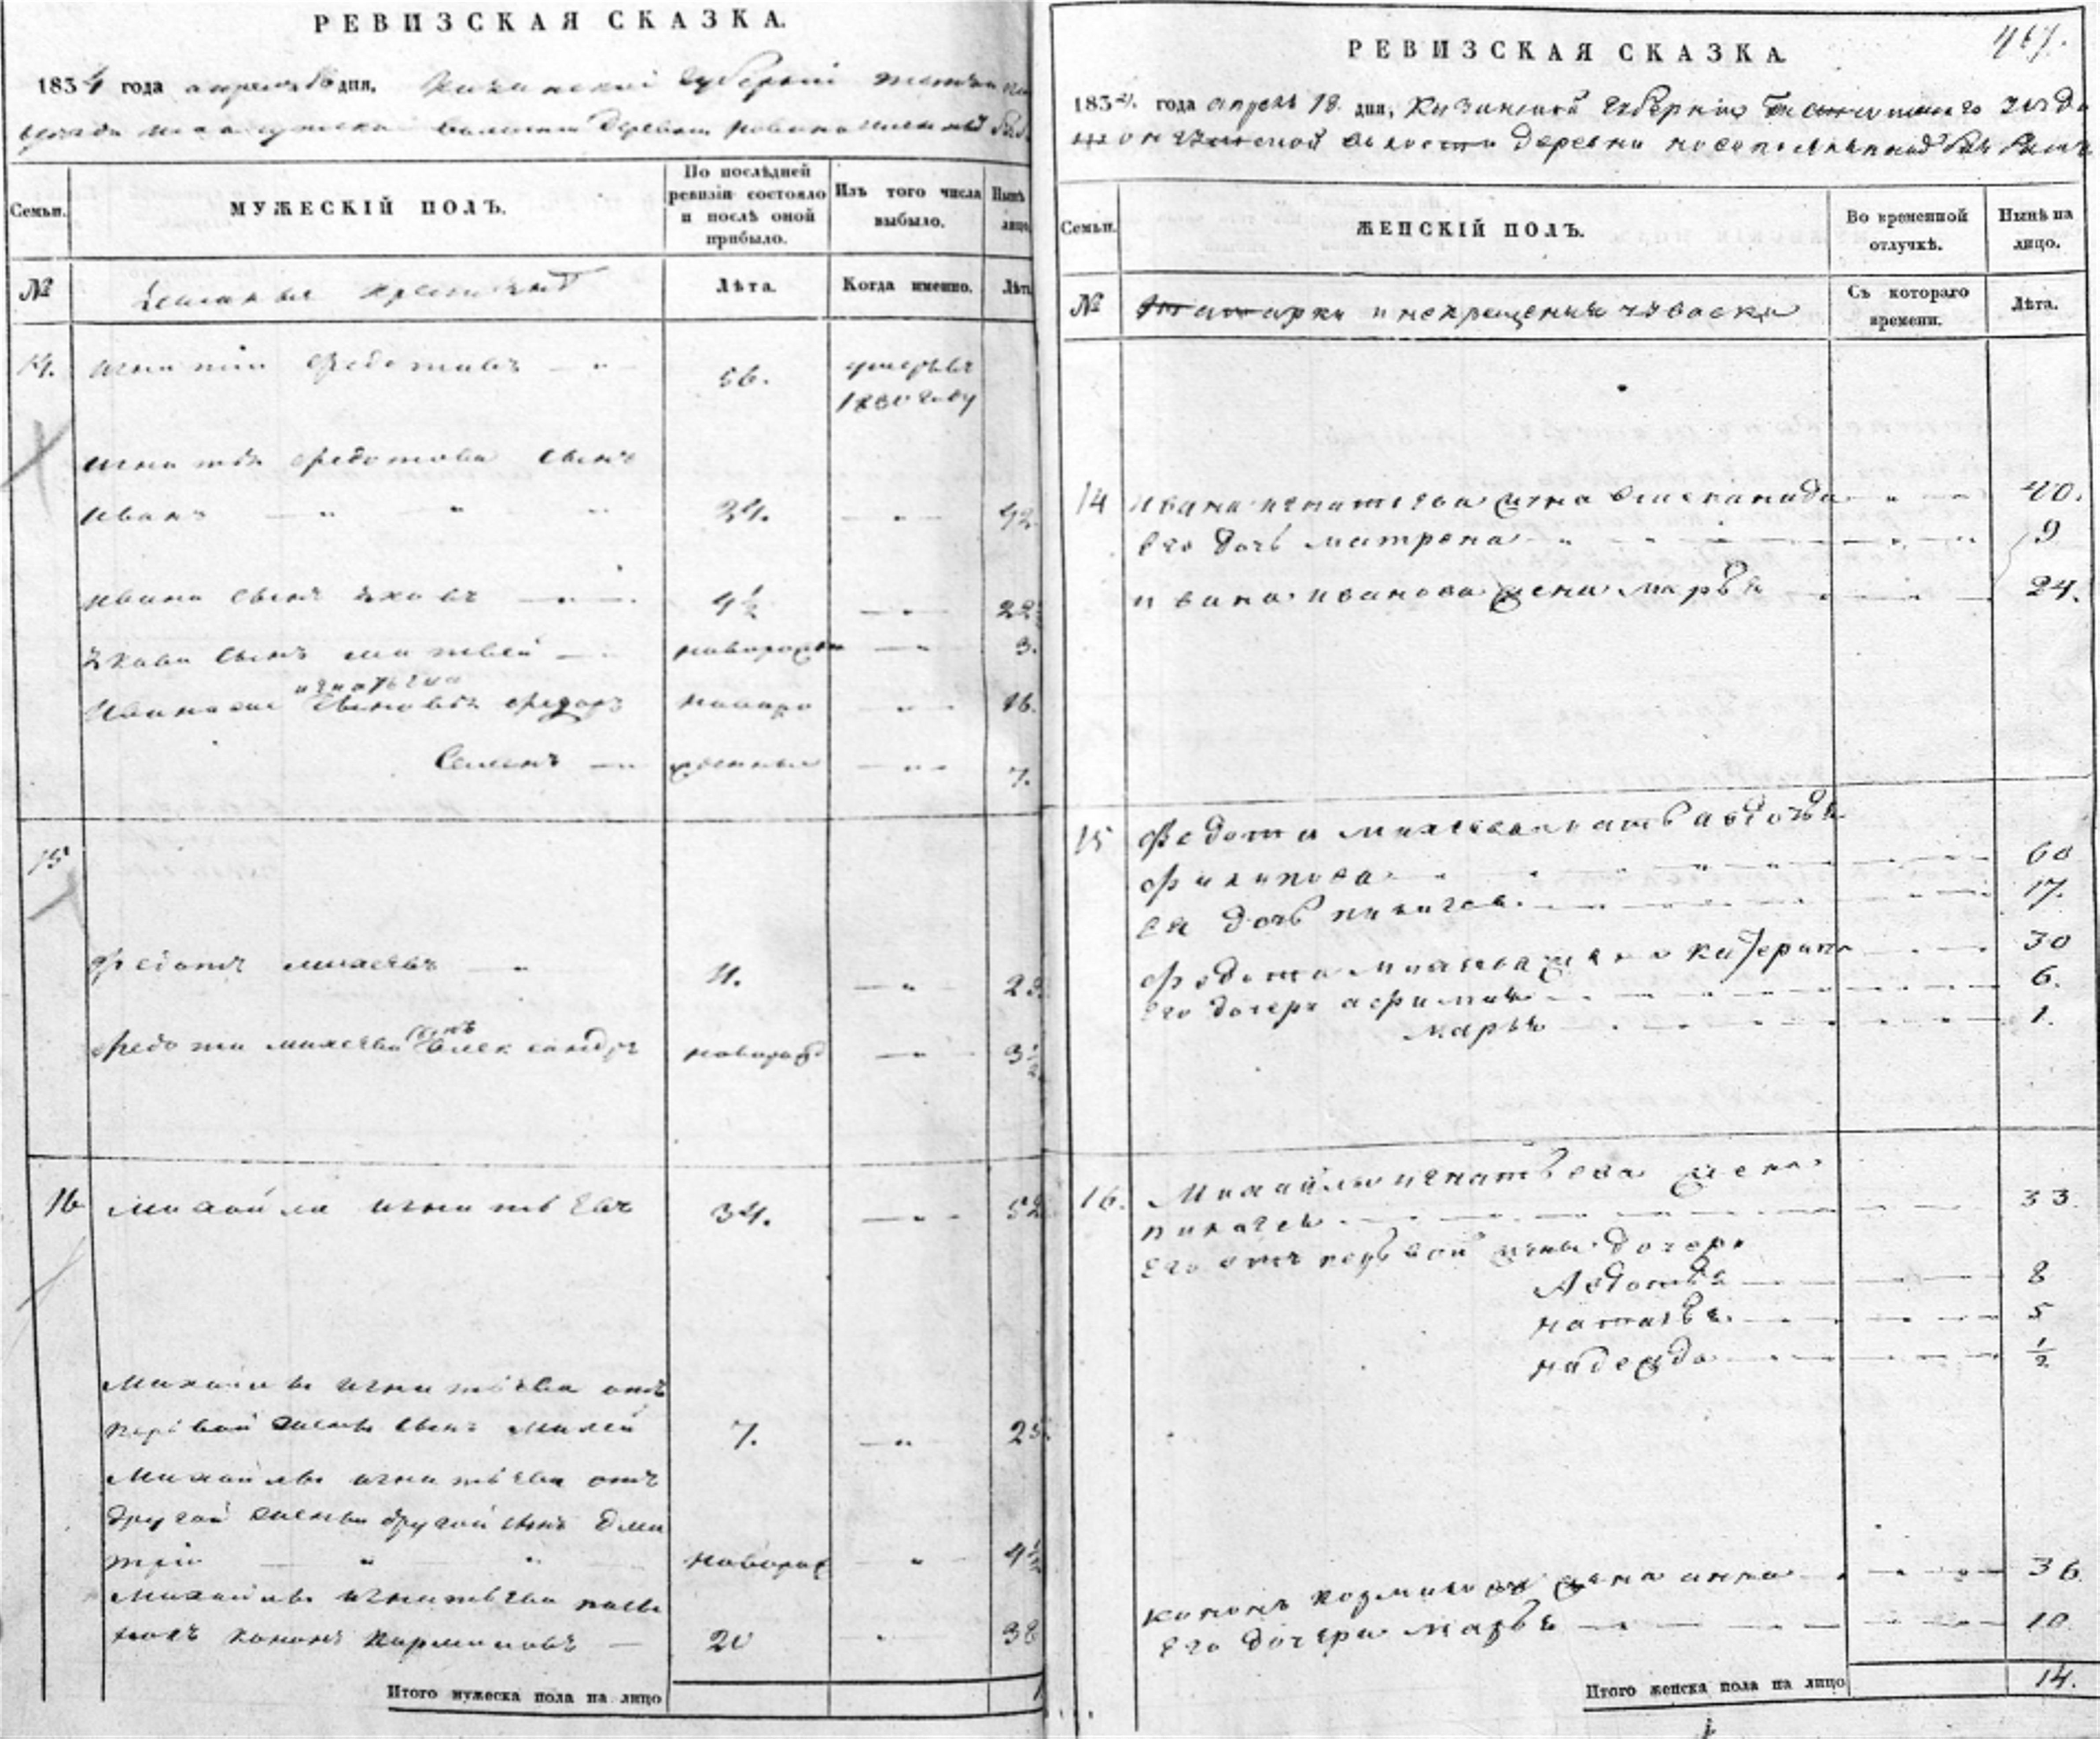 РЕВИЗСКАЯ СКАЗКА.
1834 года апреля 18 дня, Казанской губернии
волости деревни
Семьи.
МУЖЕСКІЙ ПОЛЪ.
По послѣдней
ревизіи состояло
и послѣ оной
прибыло.
Изъ того числа
выбыло.
Нынѣ
лицо
№
Лѣта.
Когда именно.
Лѣта
14.
Игнатій Федотовъ — „
56.
умеръ въ
1830 году
Игнатья Федотова сынъ
Иванъ — „ „ „
24.
— „ —
42
Ивана сынъ Яковъ — „ —
4½
— „ —
22
Якова сынъ Матвей —
новорожден
— „ —
3.
Игнатьева
Ивановы сыновья Федоръ
новоро
— „ —
16.
Семенъ — „
жденные
— „ —
7.
15
Федотъ Михеевъ — „
11.
— „ —
29.
сынъ
Федота Михеева Александръ
новорожд
— „ —
3½
16
Михайла Игнатьевъ
34.
— „ —
52
Михайлы Игнатьева отъ
первой жены сынъ Михей
7.
— „ —
25.
Михайлы Игнатьева отъ
другой жены другой сынъ Дми
трій — „ „
новорож
„
4½
Михайлы Игнатьева
Кононъ
20
„
38
Итого мужеска пола на лицо
1
РЕВИЗСКАЯ СКАЗКА.
467.
1834. года апреля 18. дня, Казанской губерніи уезда
волости деревни новопоселенной
Семьи.
ЖЕНСКІЙ ПОЛЪ.
Во временной
отлучкѣ.
Нынѣ на
лицо.
№
Татарки и некрещеныя чуваски
Съ котораго
времени.
Лѣта.
14
Ивана Игнатьева жена
40.
Его дочь Матрена
9
Ивана Иванова жена Марья
24.
15
Федота Михеева мать Авдотья
Филипова
60
Ея дочь Пилагея
17.
Федота Михеева жена Катерина
30
Его дочери Афимья
6.
Марья
1.
16.
Михайлы Игнатьева жена
Пилагея
33.
Его отъ первой жены дочери
Авдотья
8
Наталья
5
Надежда
½
Кононъ жена Анна
36.
Его дочери Марья
10
Итого женска пола на лицо
14.